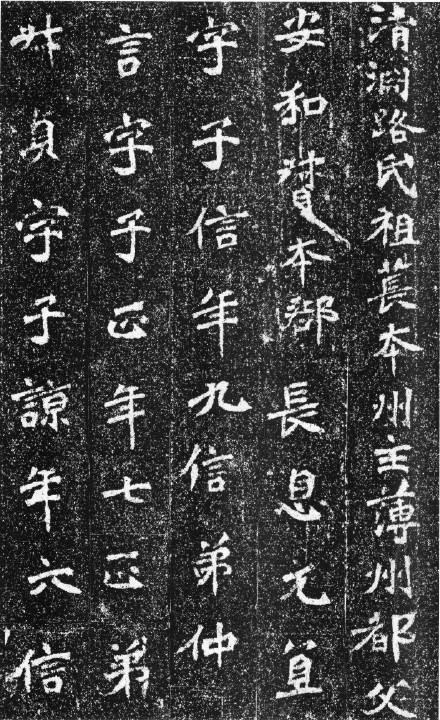 清淵路氏祖萇本州主薄州都父
安和讃本郡長息元直
字子信年九信弟仲
言字子正年七正弟
叔貞字子諒年六信